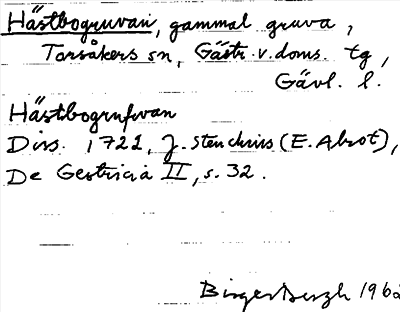 Hästbogruvan, gammal gruva,
Torsåkers sn, Gästr. v. doms. tg,
Gävl. l.
Hästbogrufvan
Diss. 1722, J. Stenchius (E. Alrot),
De Gestricia II, s. 32.
Birger 196